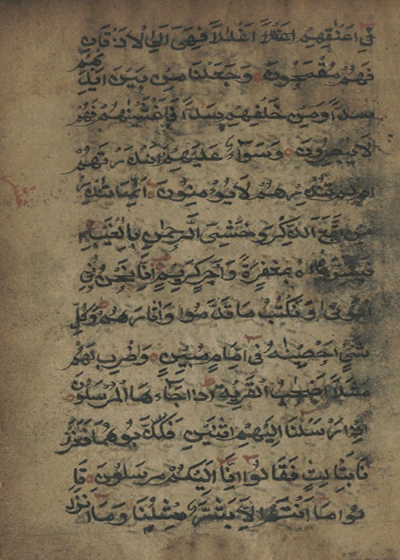 في اعنقهم اغللا فهى الى الاذقان
فهم مقمحون وجعلنا من بين ايديهم
سدا ومن خلفهم سدا فاغشينهم فهم
لا يبصرون وسواء عليهم ءانذرتهم
ام لم تنذرهم لا يؤمنون انما تنذر
من اتبع الذكر وخشي الرحمن بالغيب
فبشره بمغفرة واجر كريم انا نحن نحي
الموتى ونكتب ما قدموا واثارهم وكل
شيء احصينه في امام مبين واضرب لهم
مثلا اصحب القرية اذ جاءها المرسلون
اذ ارسلنا اليهم اثنين فكذبوهما فعزز
نا بثالث فقالوا انا اليكم مرسلون قا
لوا ما انتم الا بشر مثلنا وما انزل